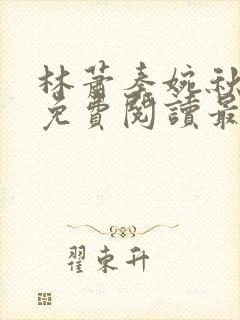 林蕭秦婉秋
免費閱讀最
翟東升